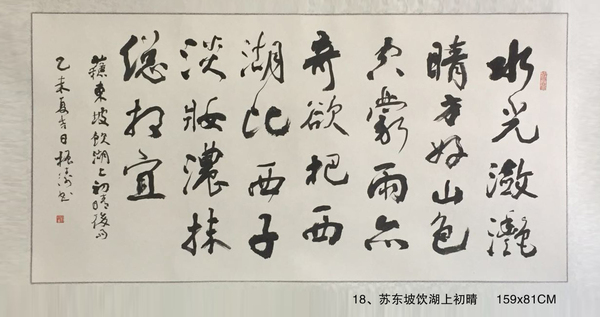 水光潋灧
晴方好山色
空蒙雨亦
奇欲把西
湖比西子
淡妝濃抹
總相宜
蘓東坡飲湖上初晴後雨
乙未夏吉日
18、苏东坡饮湖上初晴 159x81CM